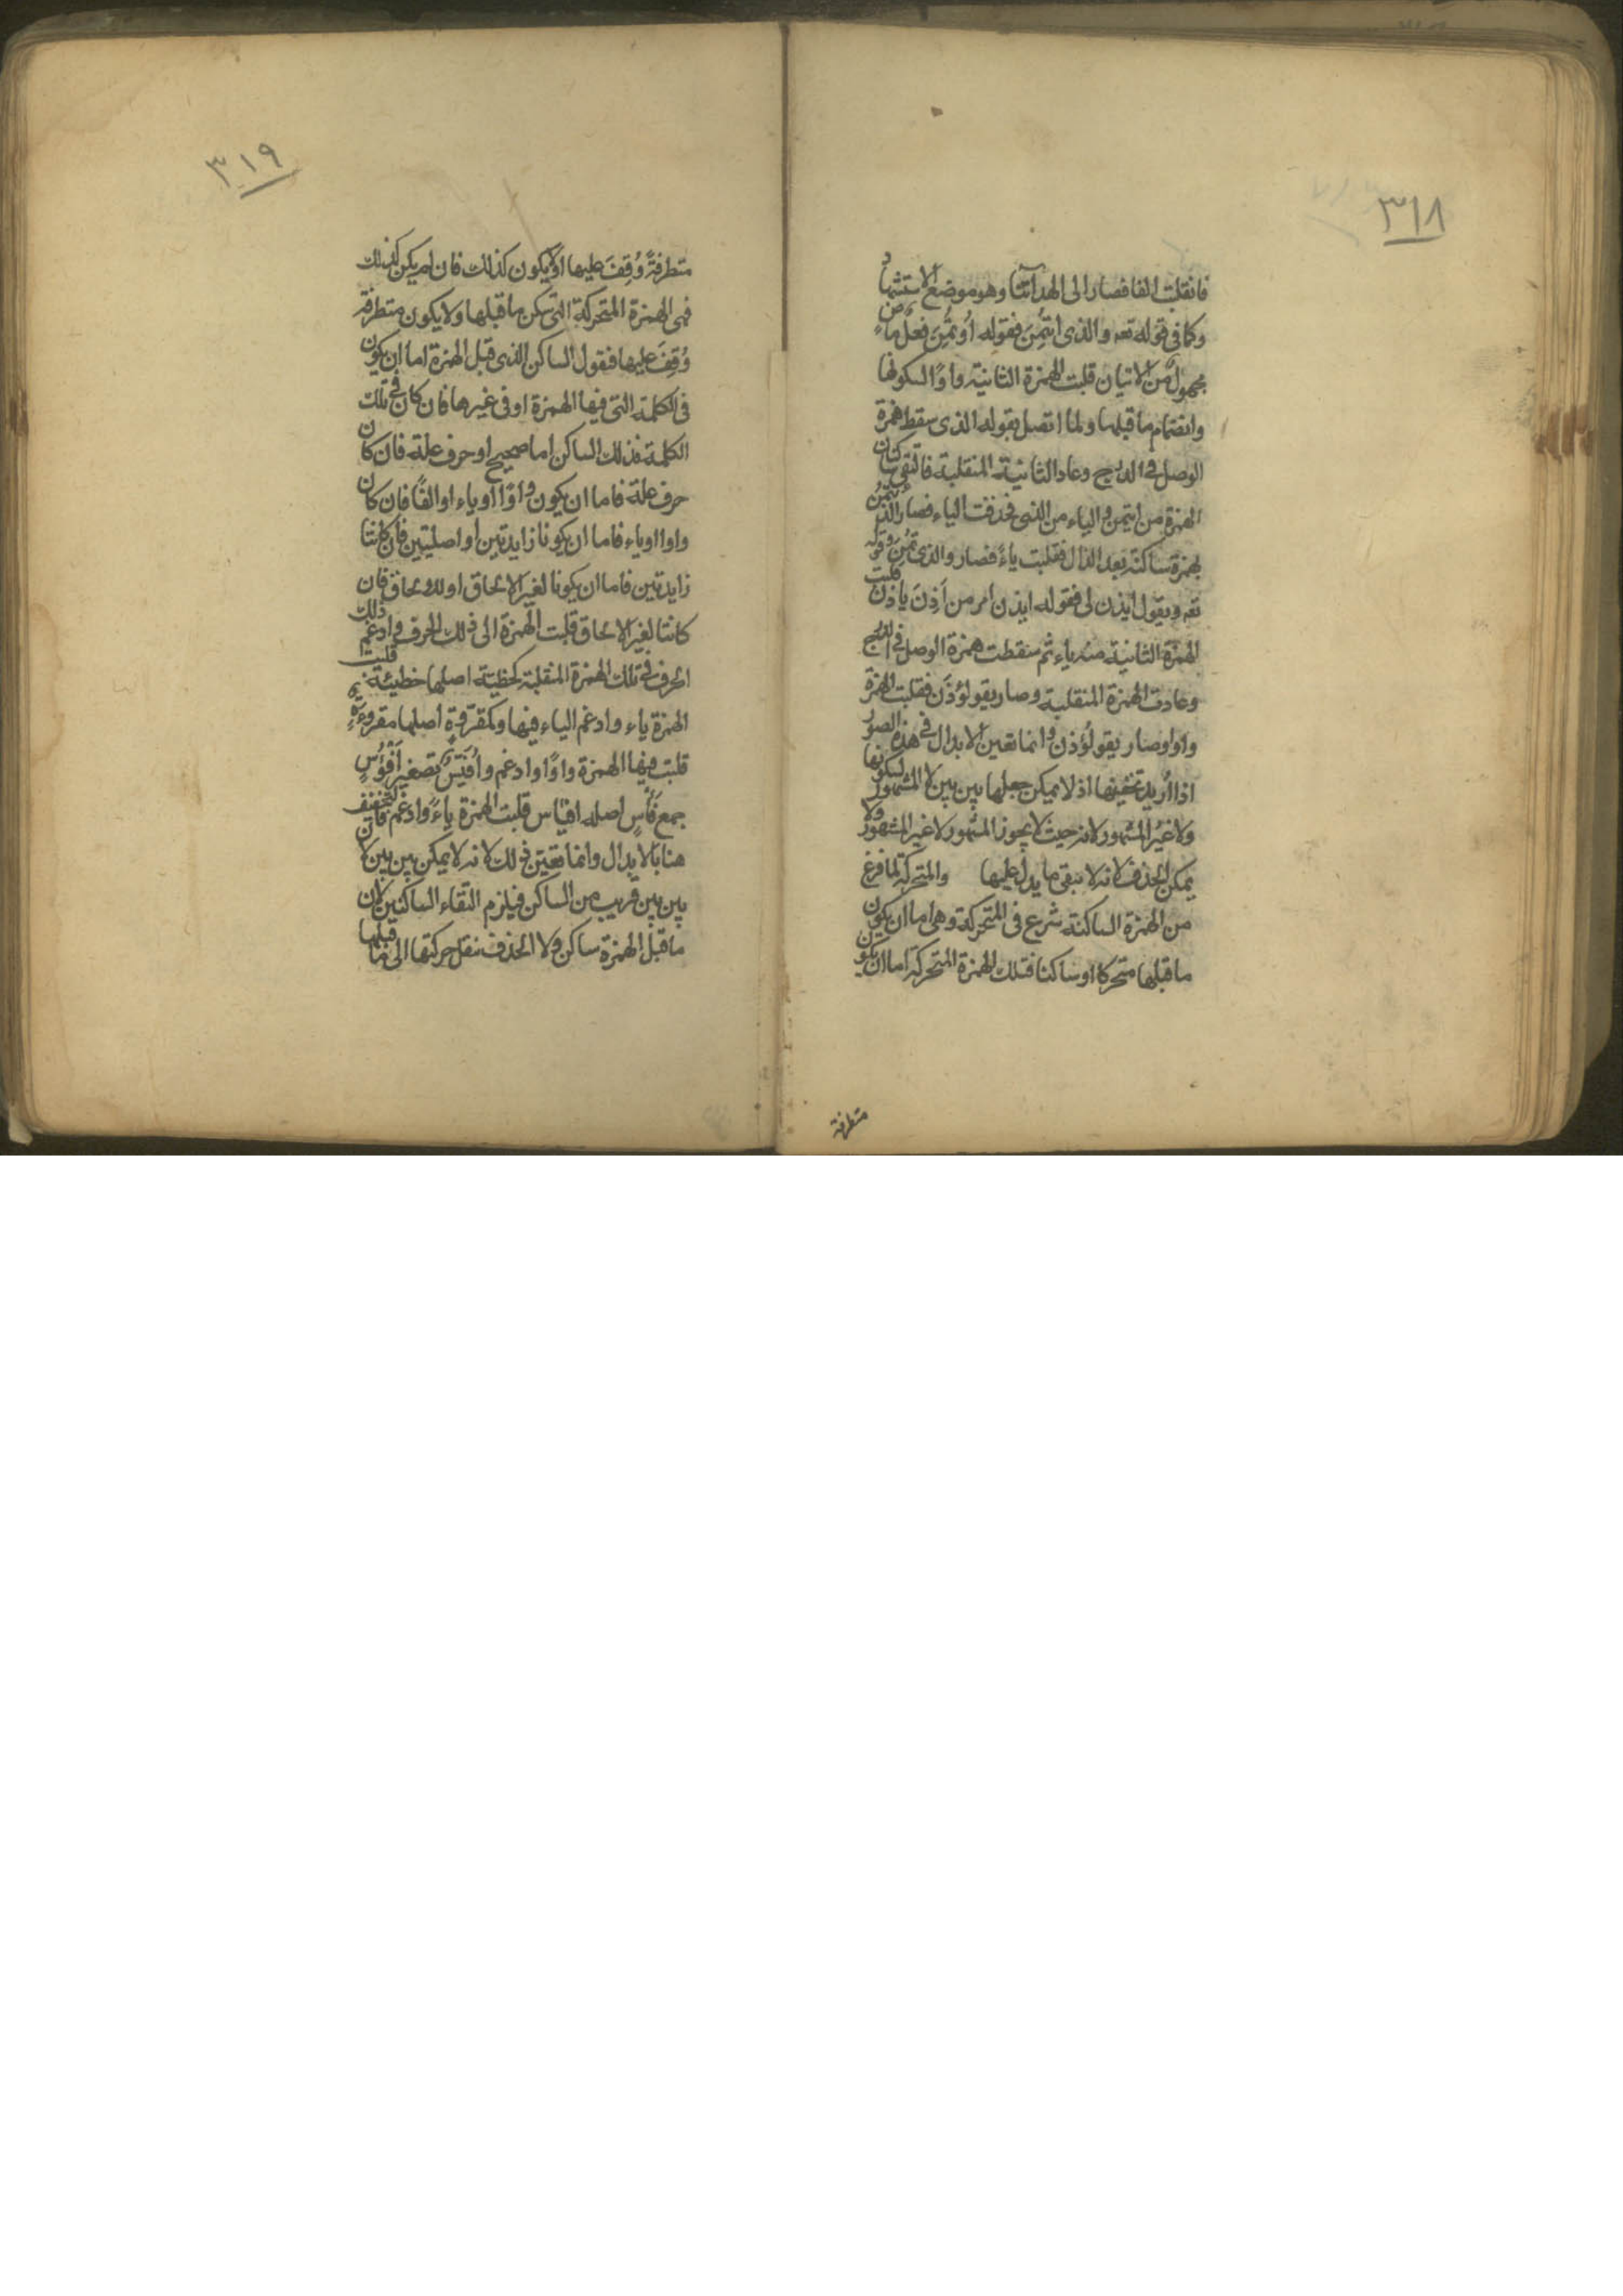 ٣١٨
فانقلبت الفا فصار الى الهدا اتنا وهو موضع الاستشهاد
وكما فى قوله تعه والذى ايتُمِنَ فقوله اُوتُمِنَ فعلُ ماضٍ
مجهولٌ من الاتيان قلبت الهمزة الثانية واوًا لسكونها
وانضمام ما قبلها ولما اتصل بقوله الذى سقط همزة
الوصل فى الدرج وعاد الثانية المنقلبة فالتقى ساكنان
الهمزة من ايتمن والياء من الذى فحذفت الياء فصار الذئتمن
بهمزة ساكنة بعد الذال فقلبت ياءً فصار والذى تُمِنَ وقوله
تعه ويقول ايذن لى فقوله ايذن امر من اَذِنَ ياذن قلبت
الهمزة الثانية منه ياء ثم سقطت همزة الوصل فى الدرج
وعادت الهمزة المنقلبة وصار يقولؤذن فقلبت الهمزة
واوا وصار يقولُوذن وانما تعين الابدال فى هذه الصور
اذا اُريد تخفيفها اذ لا يمكن جعلها بين بين لا المشهور لسكونها
ولا غيرُ المشهور لانه حيث لا يجوز المشهور لا غير المشهور ولا
يمكن الحذف لانه لا تبقى ما يدل عليها والمتحركة لما فرغ
من الهمزة الساكنة شرع فى المتحركة وهى اما ان يكون
ما قبلها متحركا او ساكنا فتلك الهمزة المتحركة اما ان يكون
متطرفة
٣١٩
متطرفةً وُقِفَ عليها اولا يكون كذلك فان لم يكن كذلك
فهى الهمزة المتحركة التى سكن ما قبلها ولا يكون متطرفة
وُقِفَ عليها فنقول الساكن الذى قبل الهمزة اما ان يكون
فى الكلمة التى فيها الهمزة او فى غيرها فان كان فى تلك
الكلمة فذلك الساكن اما صحيح او حرف علة فان كان
حرف علة فاما ان يكون واوًا او ياء او الفًا فان كان
واوا او ياء فاما ان يكونا زايدتين او اصليتين فان كانتا
زايدتين فاما ان يكونا لغير الالحاق او للالحاق فان
كانتا لغير الالحاق قلبت الهمزة الى ذلك الحرف وادغم ذلك
الحرف فى تلك الهمزة المنقلبة كخطية اصلها خطيئة قلبت
الهمزة ياء وادغم الياء فيها وكمقرُوّةٍ اصلها مقروءةٍ
قلبت فيها الهمزة واوًا وادغم واُفَيِّسٌ تصغير اَفؤُسٍ
جمع فَأسٍ اصله افيئس قلبت الهمزة ياءً وادغم فان التخفيف
هنا بالابدال وانما تعين ذلك لانه لا يمكن بين بين لان
بين بين قريب من الساكن فيلزم التقاء الساكنين لان
ما قبل الهمزة ساكن ولا الحذف بنقل حركتها الى ما قبلها